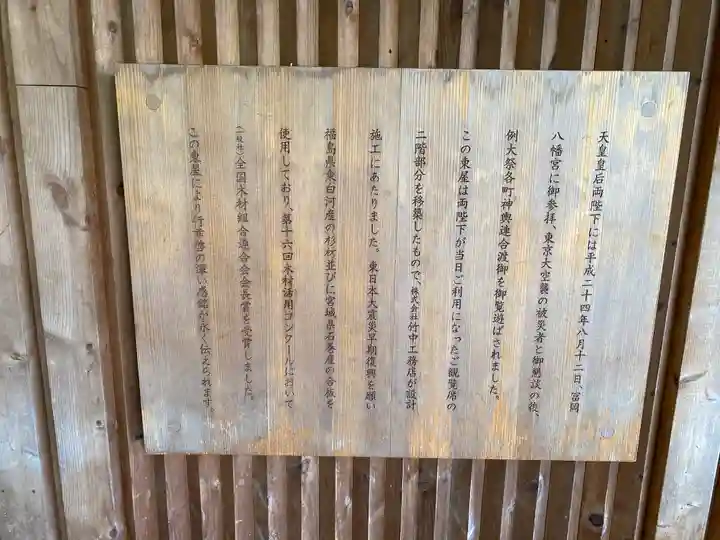 天皇皇后両陛下には平成二十四年八月十二日、富岡
八幡宮に御参拝、東京大空襲の被災者と御懇談の後、
例大祭各町神輿連合渡御を御覧遊ばされました。
この東屋は両陛下が当日ご利用になったご観覧席の
二階部分を移築したもので、株式会社竹中工務店が設計
施工にあたりました。東日本大震災早期復興を願い
福島県東白河産の杉材並びに宮城県石巻産の合板を
使用しており、第十六回木材活用コンクールにおいて
(一般社)全国木材組合連合会会長賞を受賞しました。
この東屋により行幸啓の深い感銘が永く伝えられます。